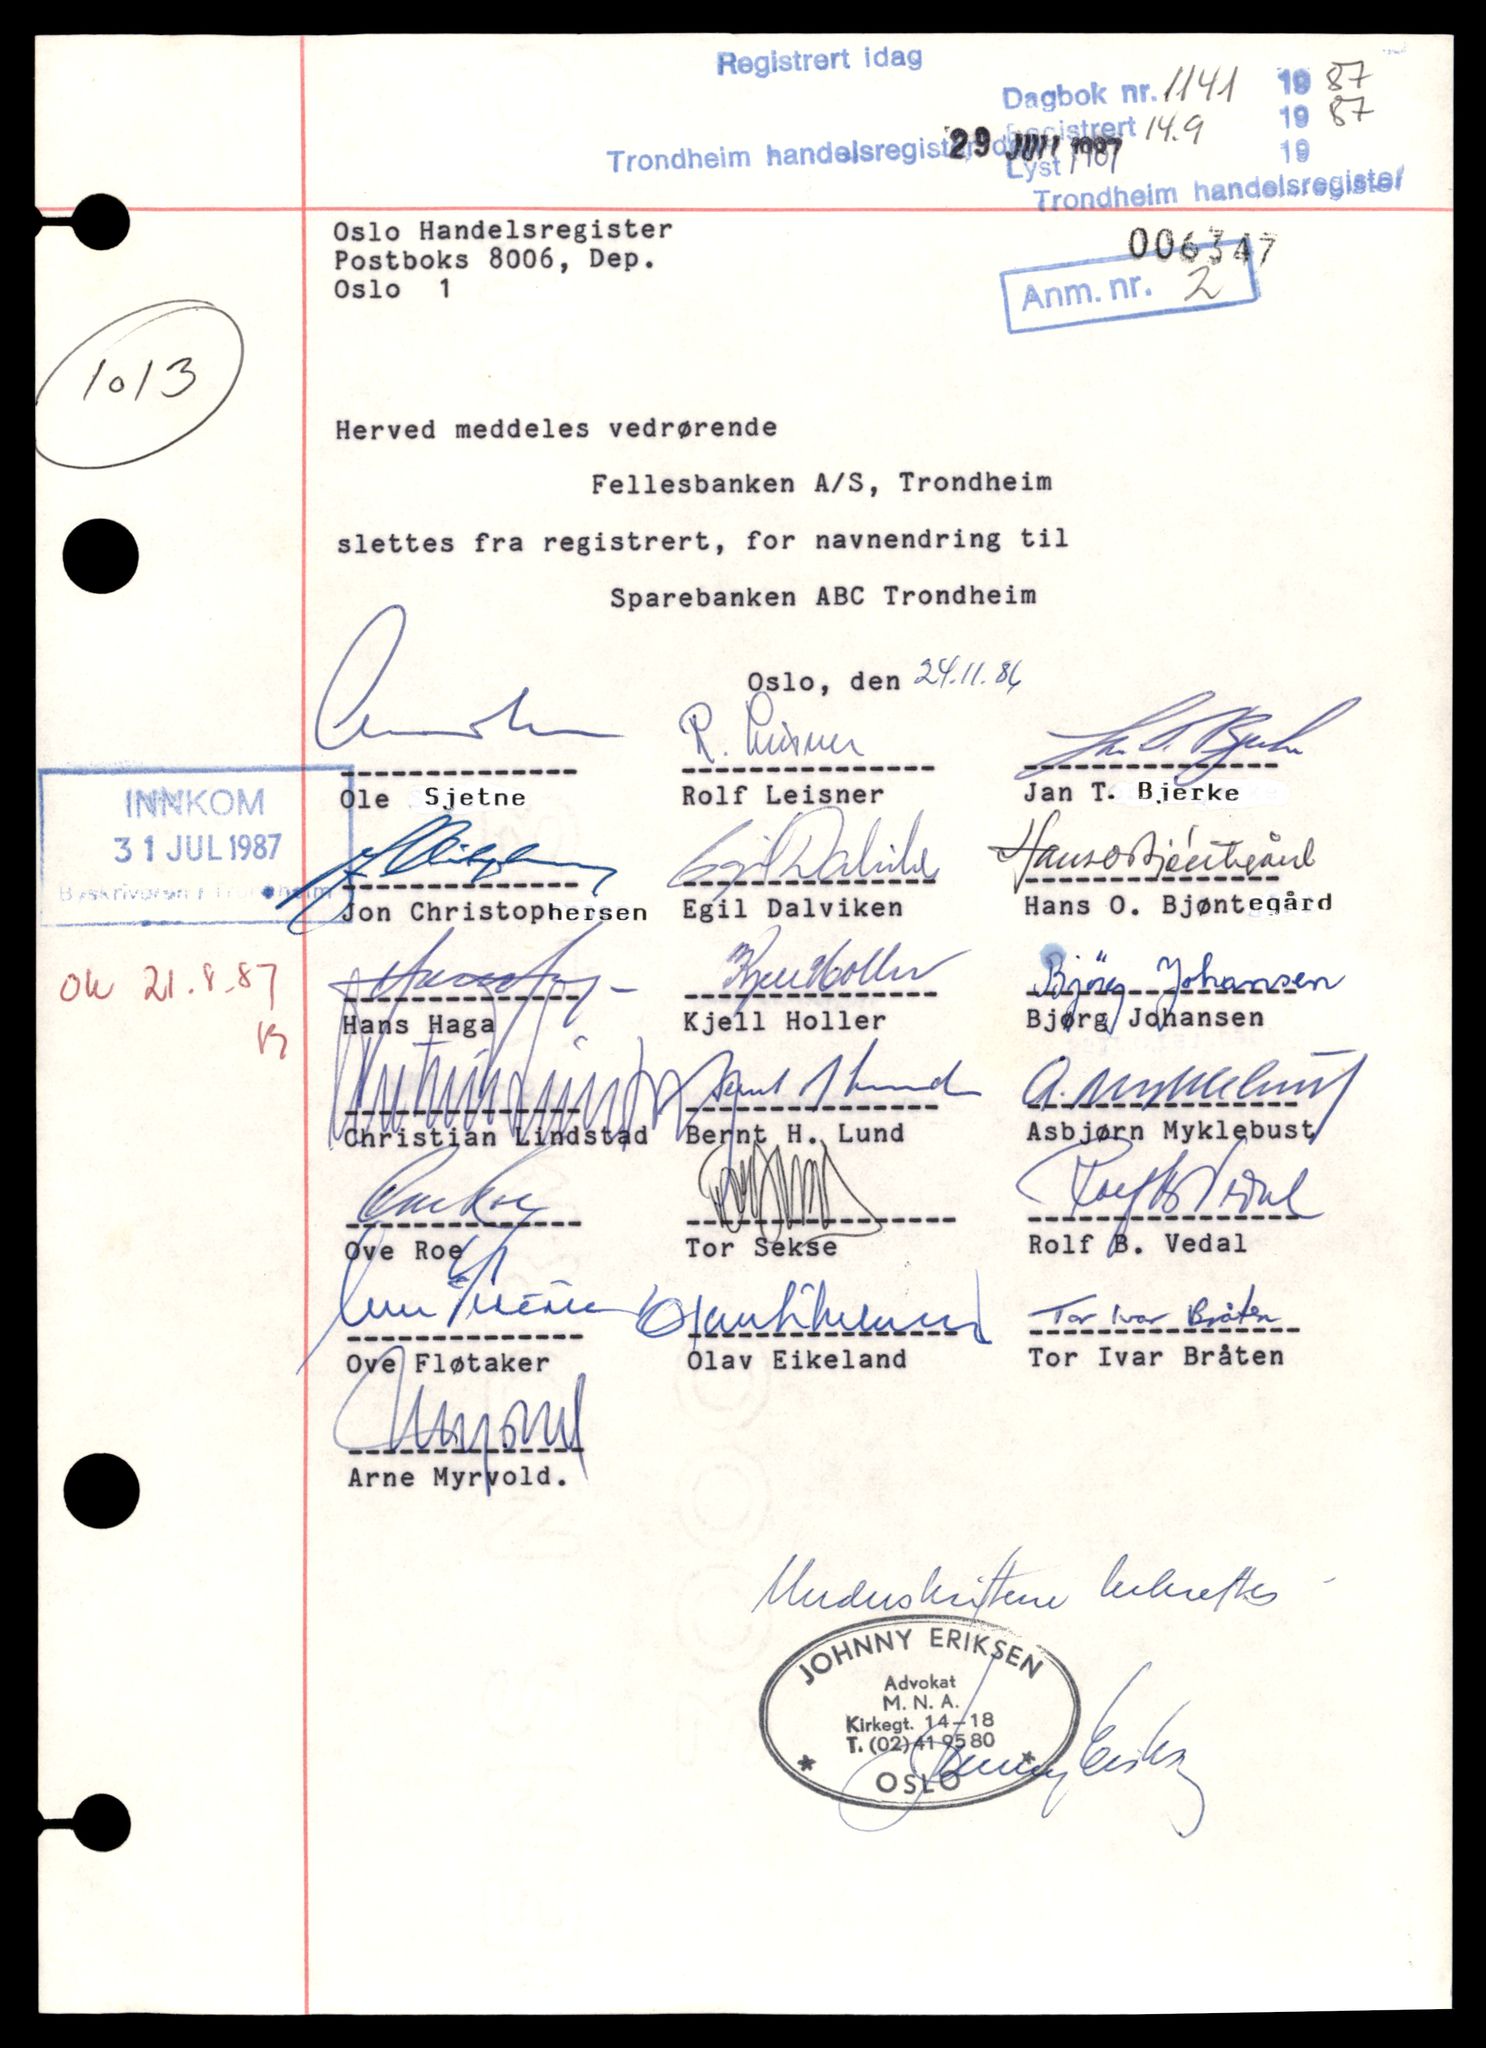 Registrert idag
Dagbok nr. 1141 19 87
Registrert 14.9 19 87
Trondheim handelsregister, 29 JUN 1987
Lyst 19
Trondheim handelsregister
Oslo Handelsregister
Postboks 8006, Dep.
Oslo 1
006347
Anm. nr. 2
1013
Herved meddeles vedrørende
Fellesbanken A/S, Trondheim
slettes fra registrert, for navnendring til
Sparebanken ABC Trondheim
Oslo, den 24.11.86
R. Leisner
Ole Sjetne Rolf Leisner Jan T. Bjerke
INNKOM
31 JUL 1987
Byskriveren i Trondheim
Egil Dalviken Hans O Bjøntegård
Jon Christophersen Egil Dalviken Hans O. Bjøntegård
ok 21.8.87
Kjell Holler Bjørg Johansen
Hans Haga Kjell Holler Bjørg Johansen
A. Myklebust
Christian Lindstad Bernt H. Lund Asbjørn Myklebust
Ove Roe Rolf B Vedal
Ove Roe Tor Sekse Rolf B. Vedal
Olav Eikeland Tor Ivar Bråten
Ove Fløtaker Olav Eikeland Tor Ivar Bråten
Arne Myrvold.
Underskriftene bekreftes
JOHNNY ERIKSEN
Advokat
M. N. A.
Kirkegt. 14-18
T. (02) 41 95 80
* OSLO *
Johnny Eriksen